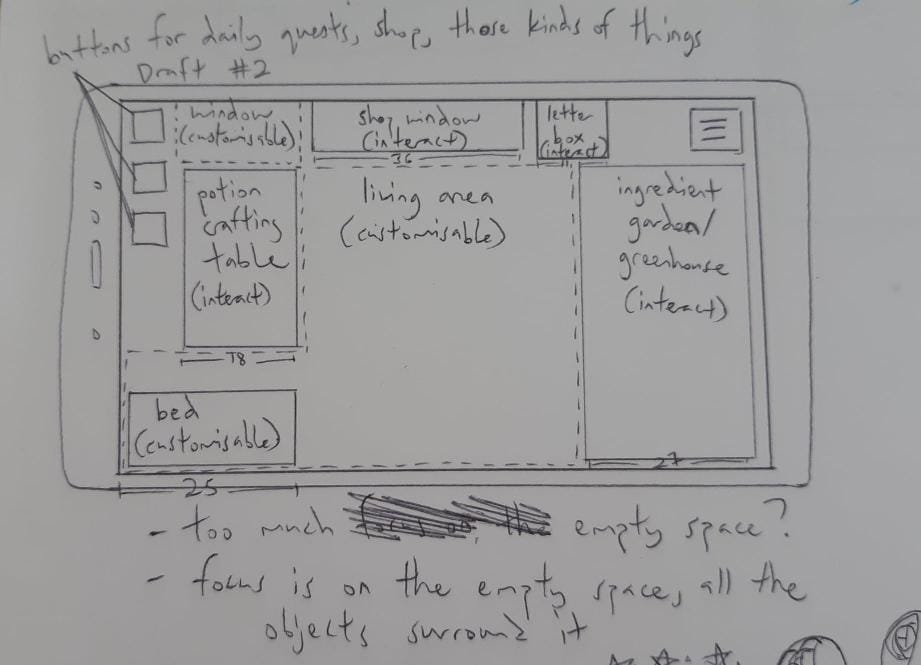 buttons for daily quests, shop, those kinds of things
Draft #2
window
(customisable)
shop window
(interact)
36
letter
box
(interact)
potion
crafting
table
(interact)
18
living area
(customisable)
ingredient
garden/
greenhouse
(interact)
27
bed
(customisable)
25
- too much empty space?
- focus is on the empty space, all the
objects surround it